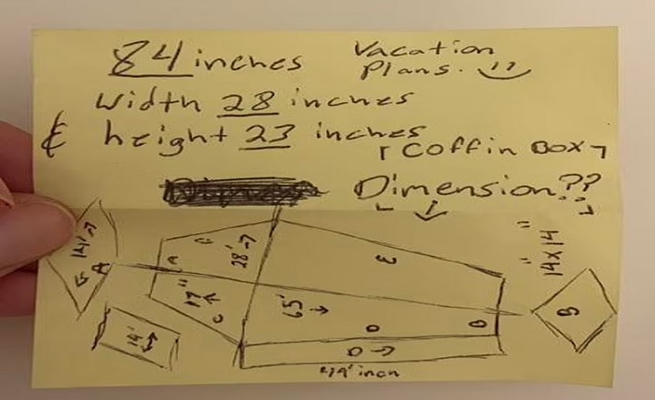 84 inches
Vacation
Plans.
Width 28 inches
& height 23 inches
Coffin Box
Dimension??
14"
A
14'
A
C
28"
17"
C
65'
E
D
B
D
14x14"
B